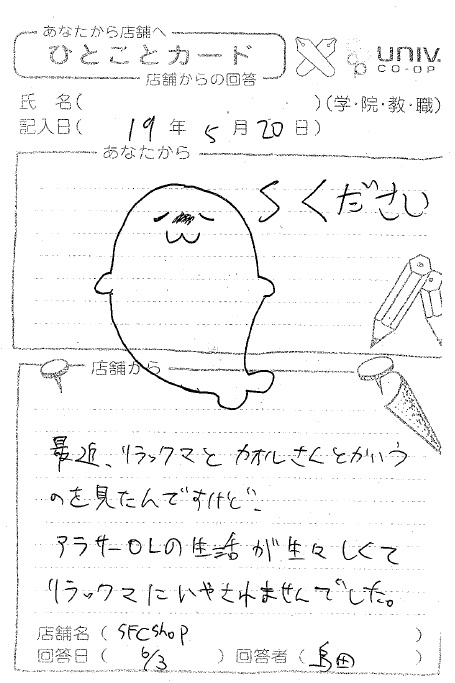 あなたから店舗へ
ひとことカード
店舗からの回答
UNIV.
CO-OP
氏 名( )(学・院・教・職)
記入日( 19 年 5 月 20 日)
あなたから
Sください
店舗から
最近、リラックマとカオルさんとかいう
のを見たんですけど、
アラサーOLの生活が生々しくて
リラックマにいやされませんでした。
店舗名( SFCshop )
回答日( 6/3 )回答者( 島田 )